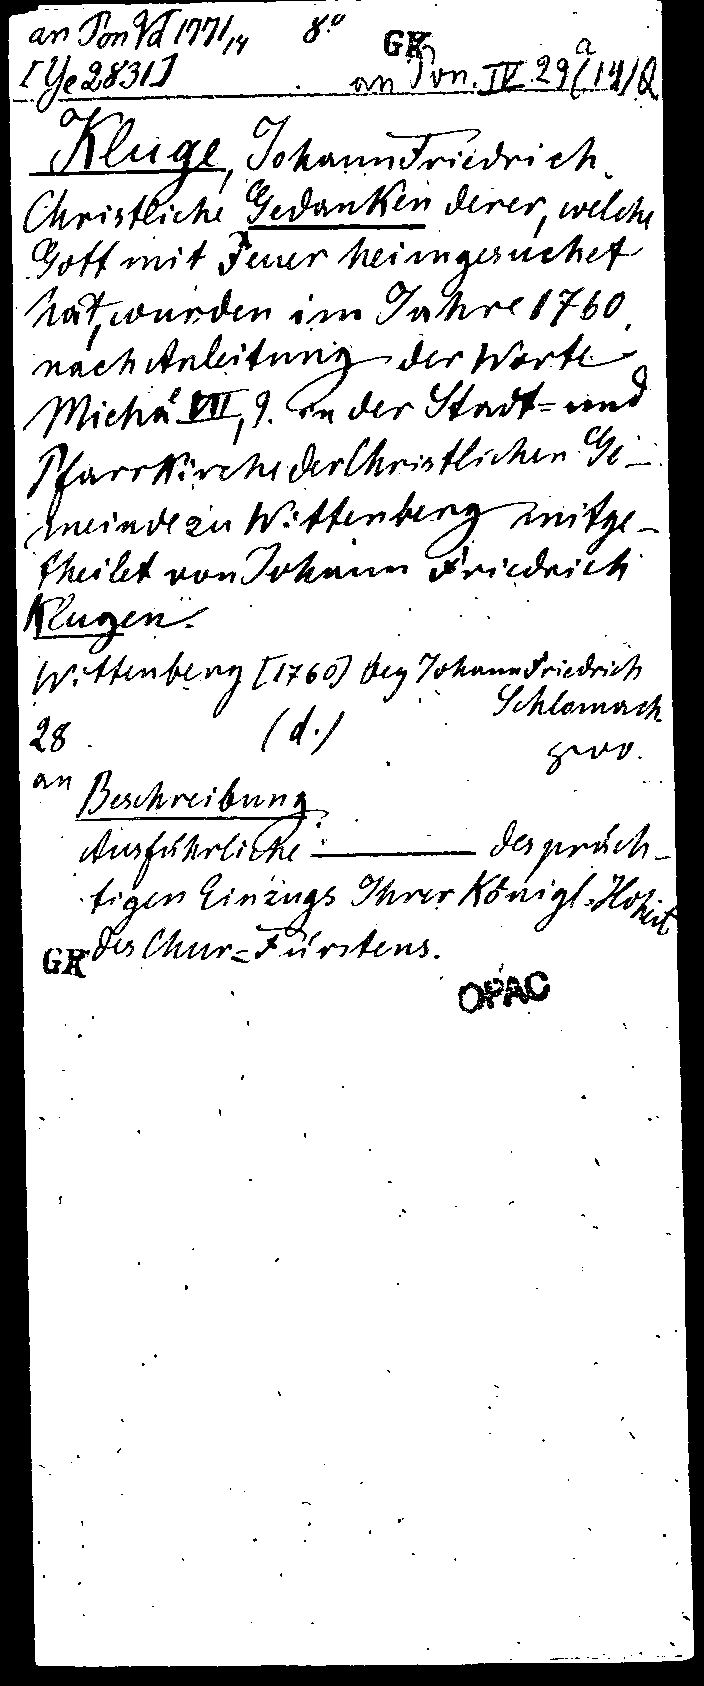 an Pon Vd 1771/14 8.°
GK
[Ye 2831] an Pon. IV 29a (14) Q
Kluge, Johann Friedrich.
Christliche Gedanken derer, welche
Gott mit Feuer heimgesuchet
hat, wurden im Jahre 1760.
nach Anleitung der Worte
Michä VII, 9. in der Stadt= und
Pfarrkirche der Christlichen Ge-
meinde zu Wittenberg mitge-
theilet von Johann Friedrich
Klugen.
Wittenberg [1760] bey Johann Friedrich
Schlomach
28 (d.)
an Beschreibung.
Ausführliche — des präch-
tigen Einzugs Ihrer Königl=Hoheit
GK des Chur=Fürstens.
OPAC